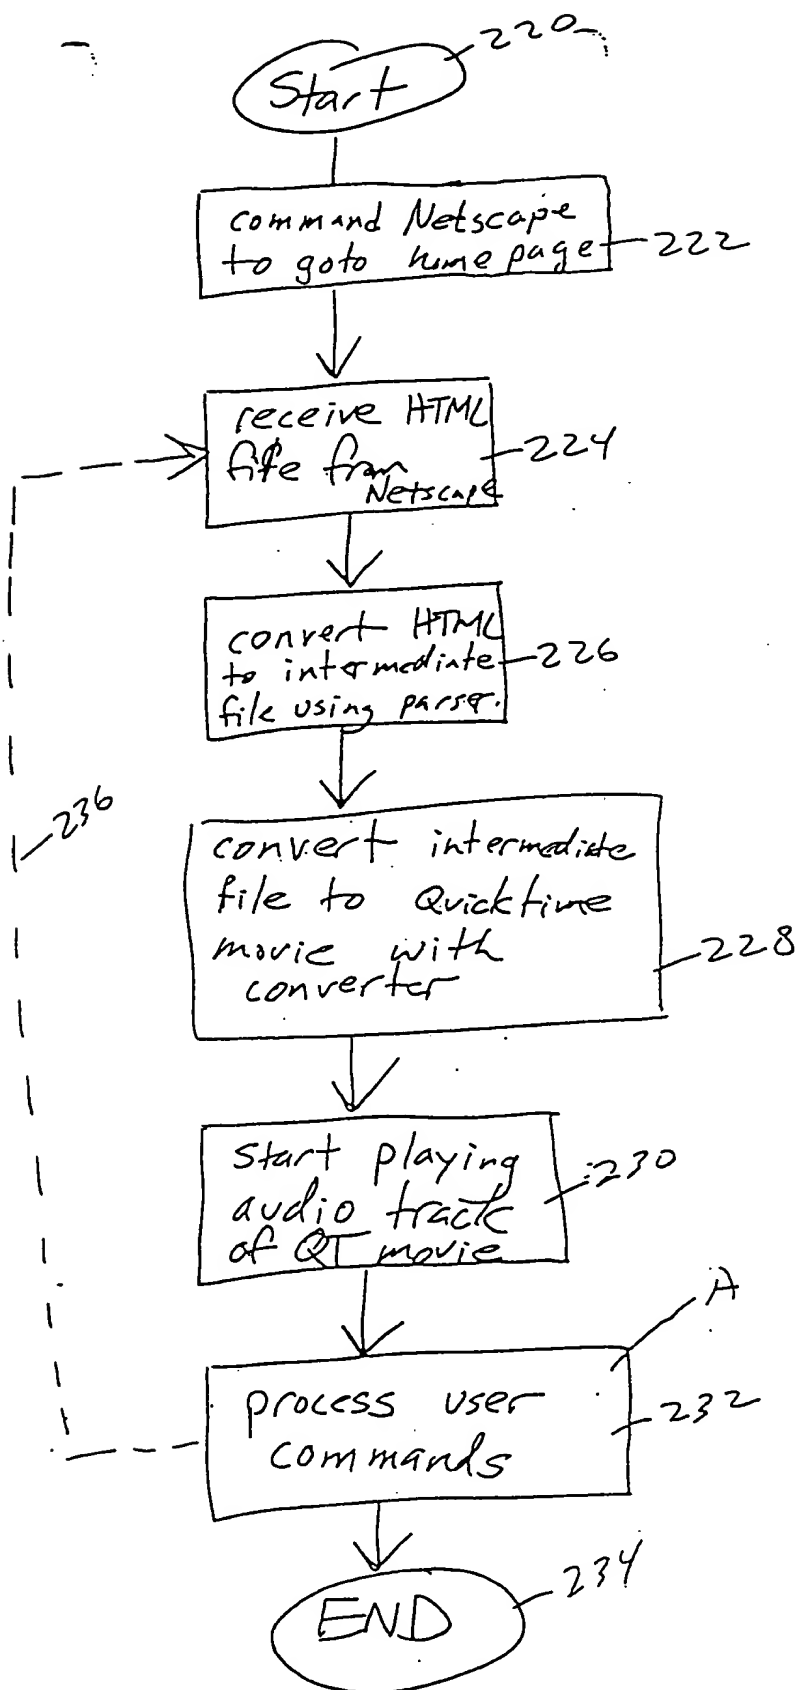 220
Start
command Netscape
to goto home page
222
receive HTML
file from
Netscape
224
convert HTML
to intermediate
file using parser.
226
236
convert intermediate
file to Quicktime
movie with
converter
228
start playing
audio track
of QT movie
230
A
process user
commands
232
END
234